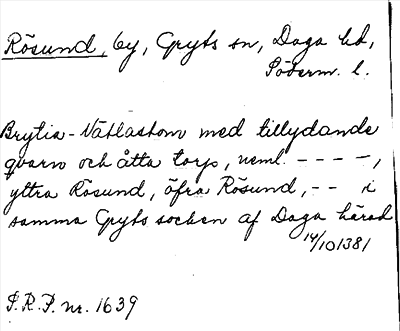 Rösund, by, Gryts sn, Daga hd,
Söderm. l.
Brytia-Nätlastom med tillydande
qvarn och åtta torp, neml. - - - -,
yttra Rösund, öfra Rösund, - - i
samma Gryts socken af Daga härad
14/10 1381
S.R.P. nr. 1639